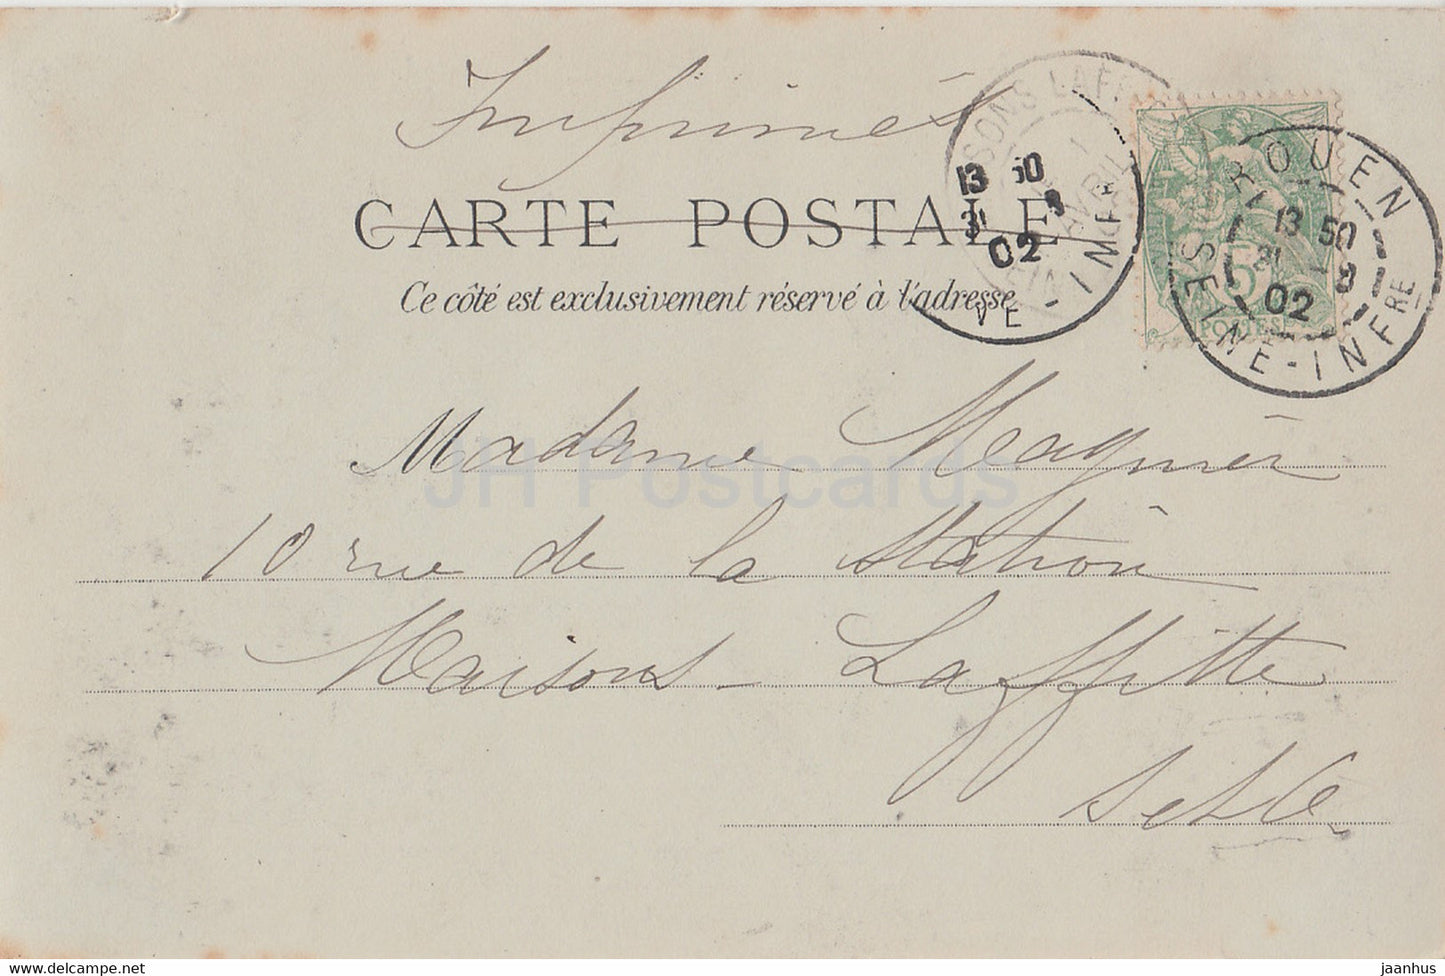 Imprimés
CARTE POSTALE
Ce côté est exclusivement réservé à l'adresse
MAISONS LAFFITTE
AVRIL
13 50
31 3
02
VE - INFRE
ROUEN
13 50
31 3
02
SEINE-INFRE
5
POSTES
JH Postcards
Madame Magnier
10 rue de la Station
Maisons-Laffitte
S et O
delcampe.net
jaanhus